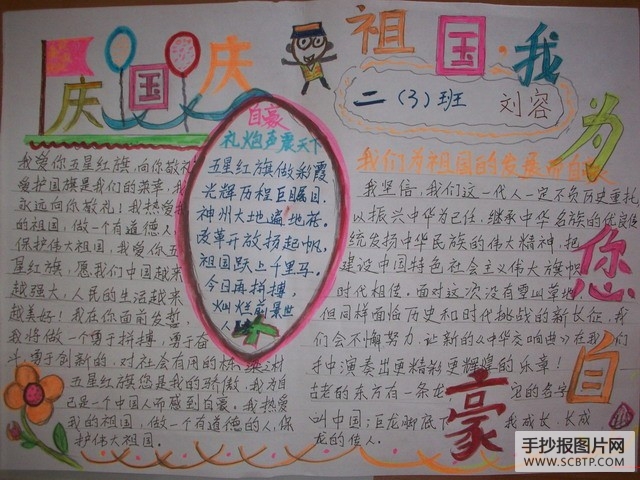 庆国庆
祖国·我为您自豪
二（3）班 刘容
我爱你五星红旗,向你敬礼
爱护国旗是我们的荣幸,我
永远向你敬礼!我热爱我
的祖国,做一个有道德人
保护伟大祖国,我爱你五
星红旗,愿我们中国越来
越强大,人民的生活越来
越美好!我在你面前发誓,
我将做一个勇于拼搏,勇于奋
斗,勇于创新的,对社会有用的栋梁之材
五星红旗您是我的骄傲,我为自
己是一个中国人而感到自豪。我热爱
我的祖国,做一个有道德的人,保
护伟大祖国。
自豪
礼炮声震天下
五星红旗做彩霞
光辉历程巨瞩目.
神州大地遍地花.
改革开放扬起帆,
祖国跃上千里马.
今日再拼搏,
灿烂前景世
我们为祖国的发展而自
我坚信,我们这一代人一定不负历史重托
以振兴中华为己任.继承中华名族的优良传
统发扬中华民族的伟大精神,把
建设中国特色社会主义伟大旗帜
时代相传,面对这次没有雪山草地,
但同样面临历史和时代挑战的新长征,我
们会不懈努力,让新的《中华交响曲》在我们
手中演奏出更精彩更辉煌的乐章!
古老的东方有一条龙 的名字
叫中国;巨龙脚底下 我成长,长成
龙的传人.
手抄报图片网
WWW.SCBTP.COM